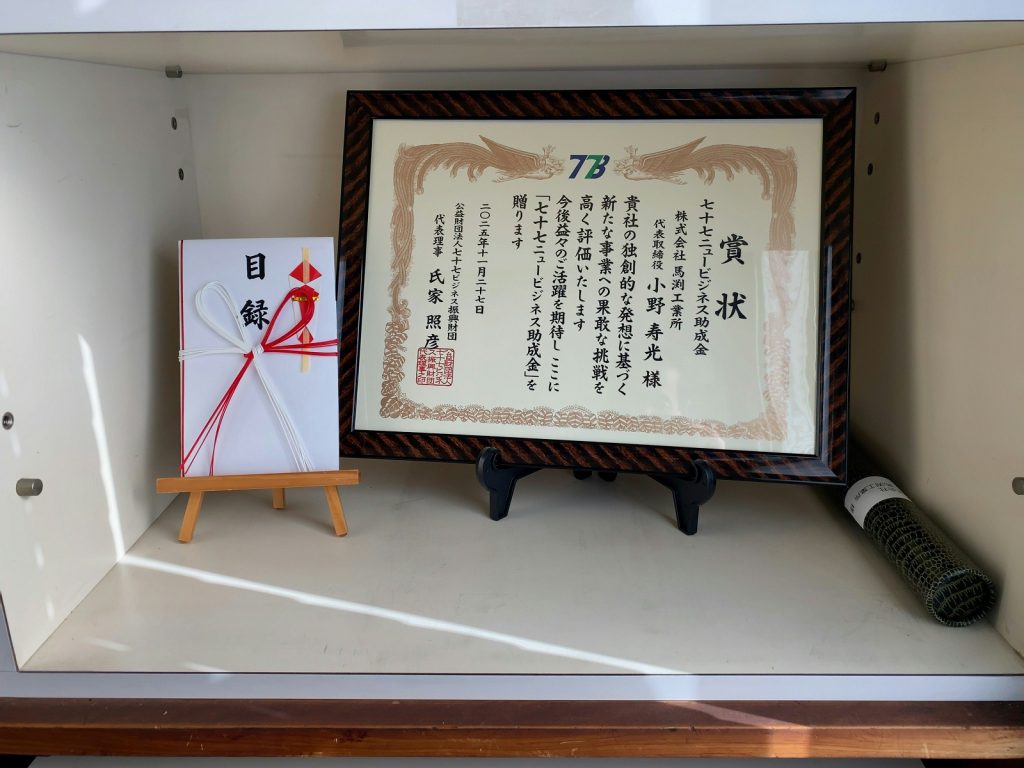 目録
77B
賞状
七十七ニュービジネス助成金
株式会社 馬渕工業所
代表取締役 小野寿光 様
貴社の独創的な発想に基づく
新たな事業への果敢な挑戦を
高く評価いたします
今後益々のご活躍を期待し ここに
「七十七ニュービジネス助成金」を
贈ります
二〇二五年十一月二十七日
公益財団法人七十七ビジネス振興財団
代表理事 氏家照彦